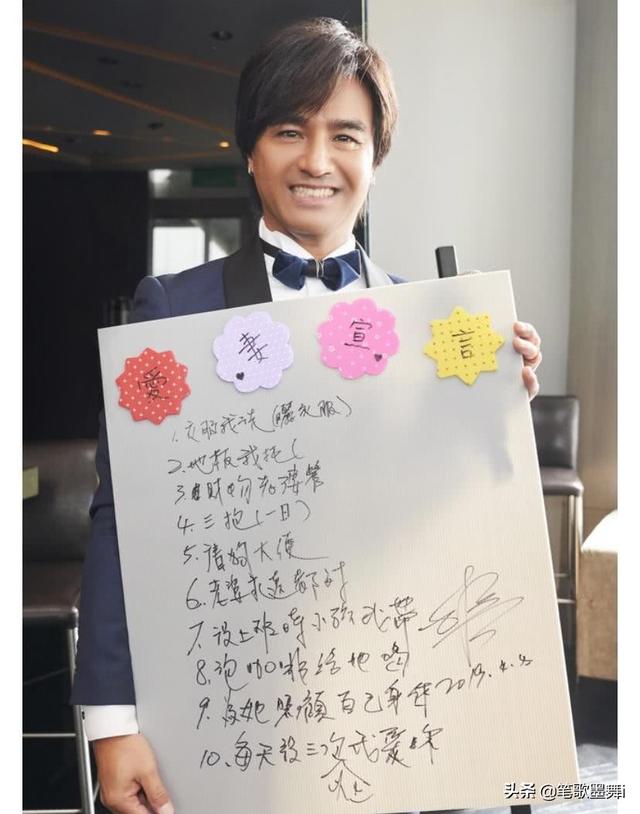 愛妻宣言
1. 衣服我洗 (曬衣服)
2. 地板我拖 (
3. 財物老婆管
4. 三抱 (一日)
5. 清狗大便
6. 老婆永遠都對
7. 沒上班時小孩我帶
8. 泡咖啡給她喝
9. 為她照顧自己身體 2019.4.
10. 每天說三次我愛妳
头条 @笔歌墨舞i